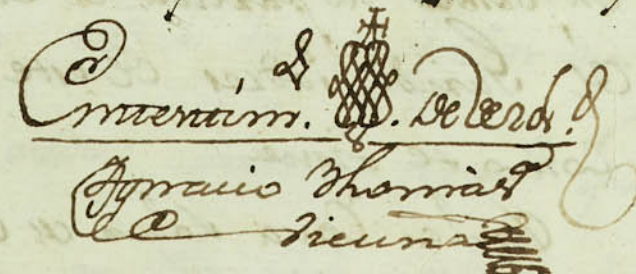 En testim.º de verd.d
Ygnacio Thomas
Vicuña